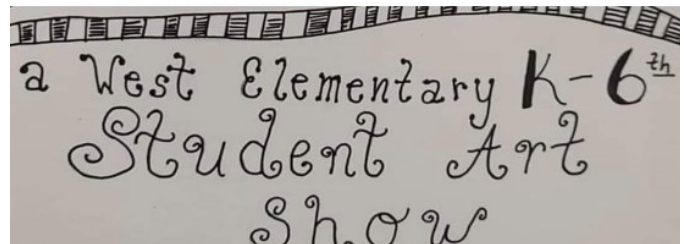 a West Elementary K-6th
Student Art
Show